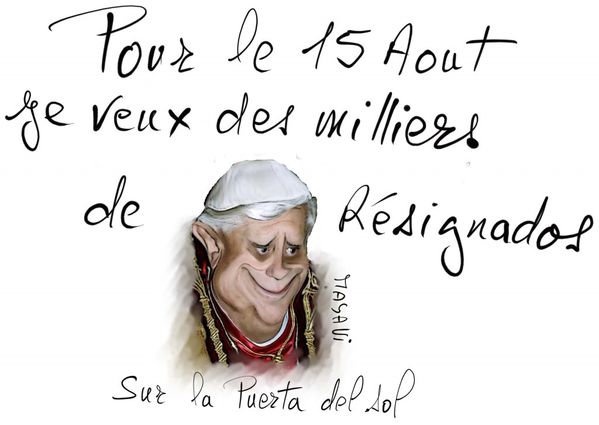 Pour le 15 Aout
je veux des milliers
de Résignados
MASAVI
Sur la Puerta del sol